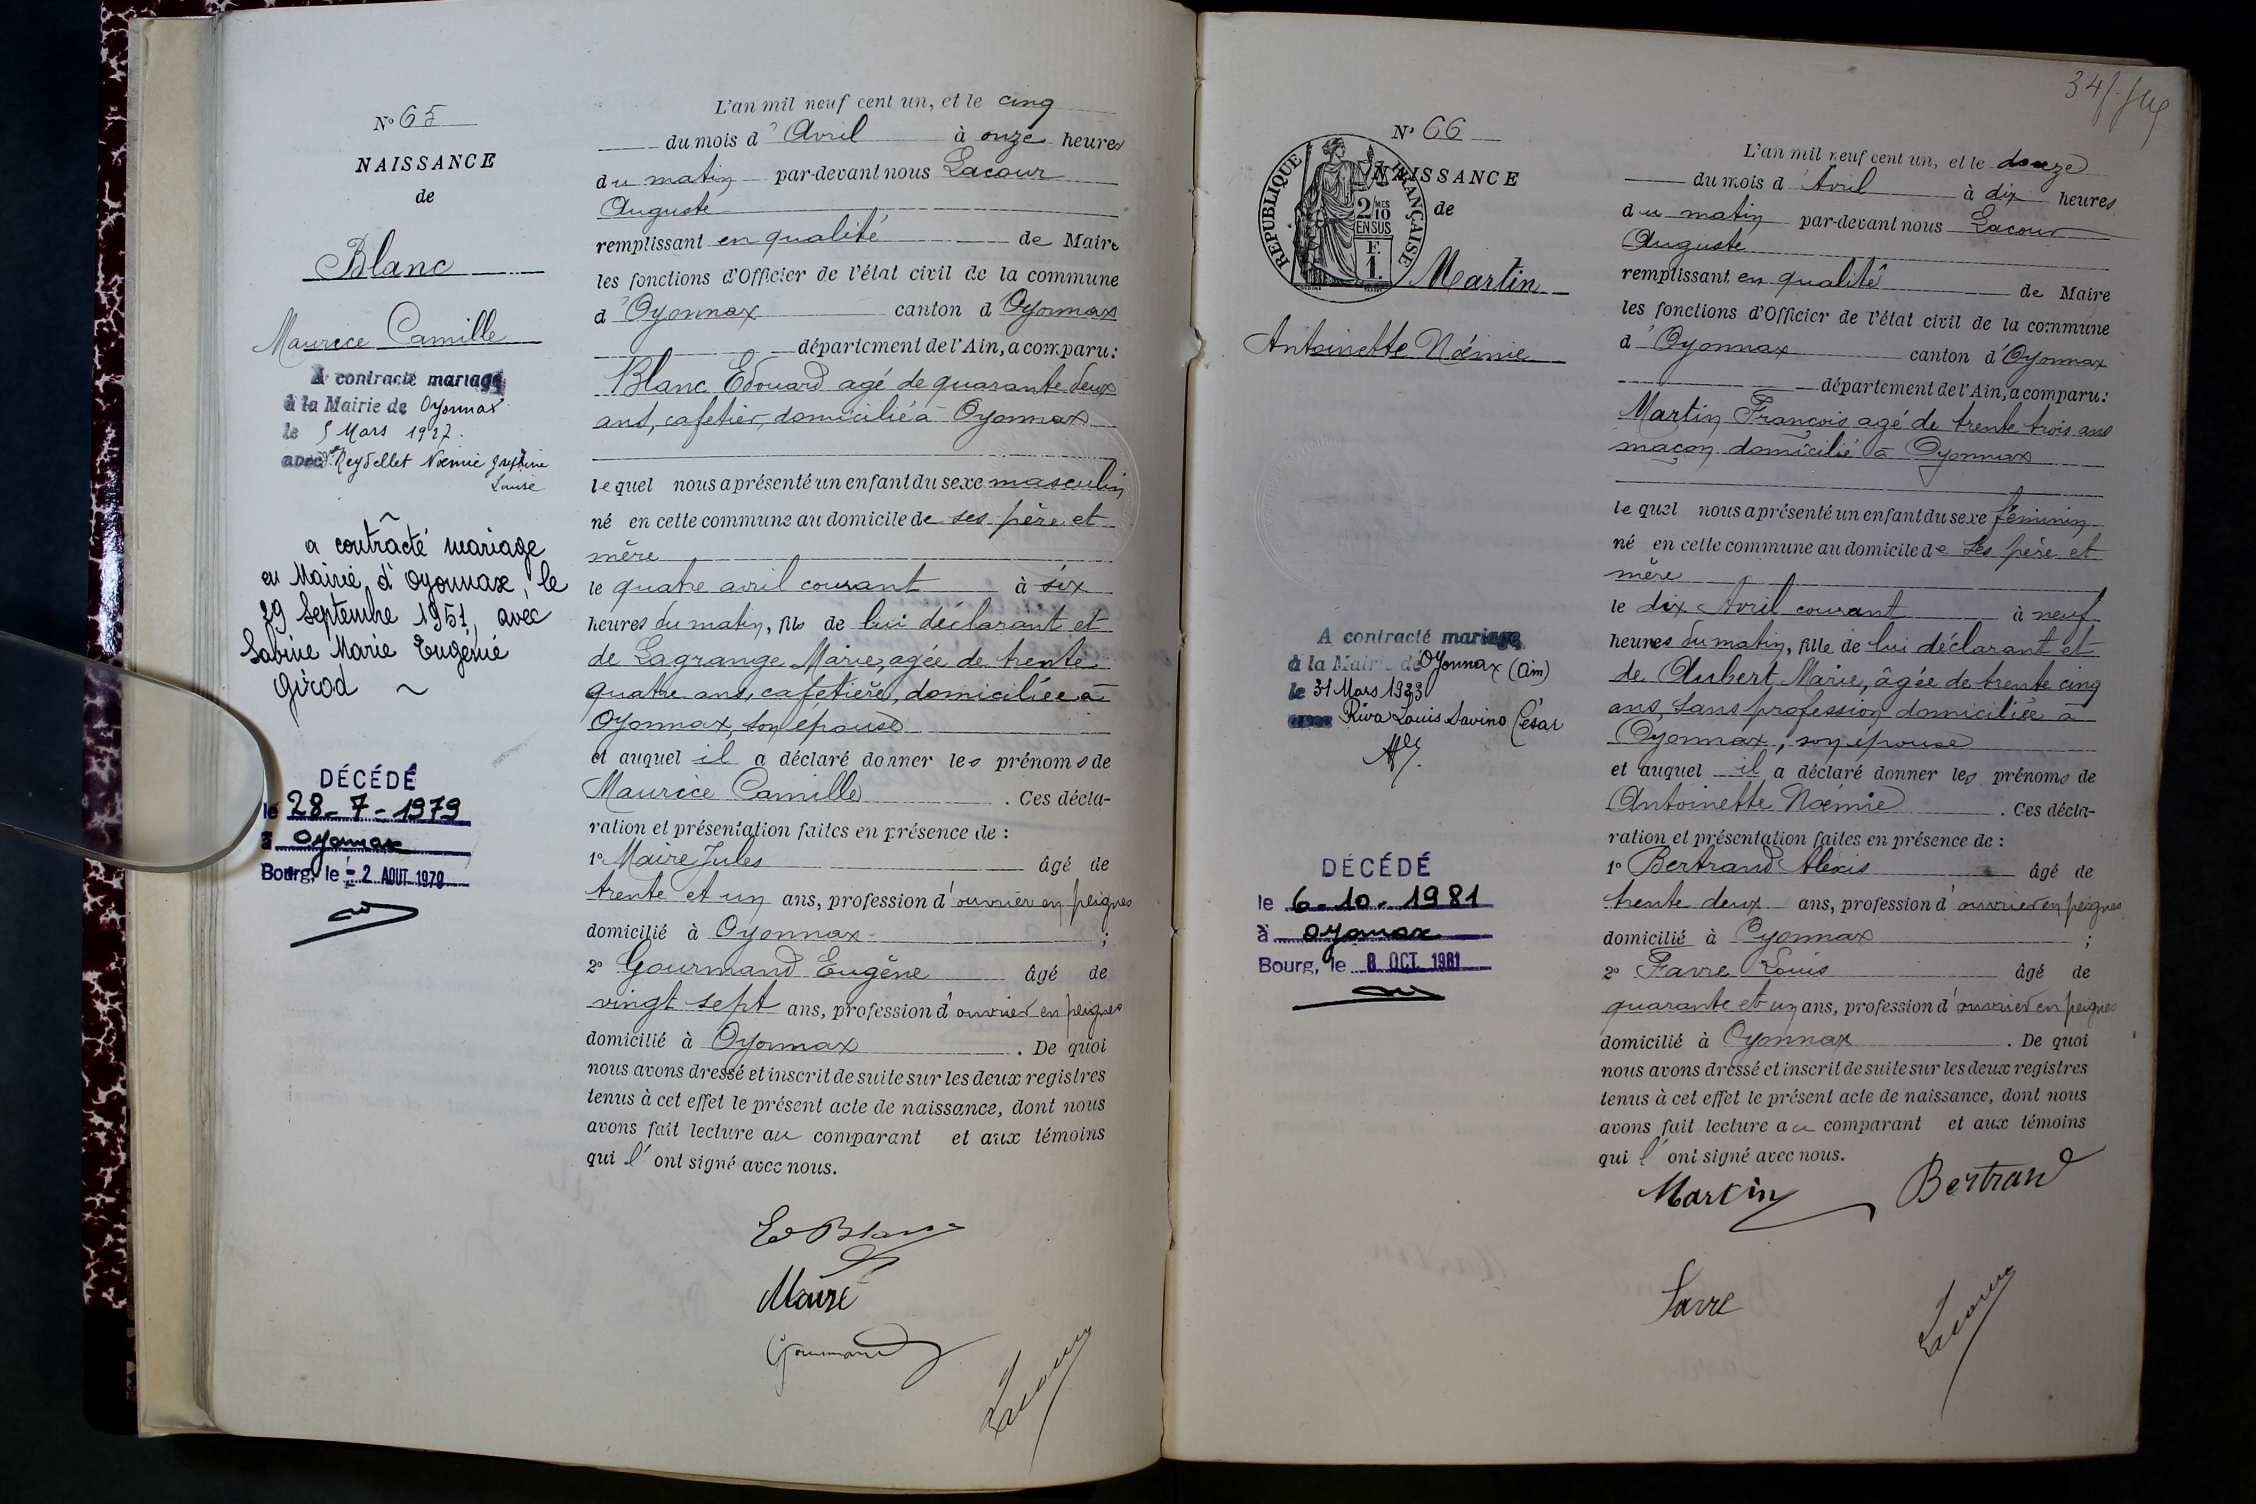 N° 65
NAISSANCE
de
Blanc
Maurice Camille
A contracté mariage
à la Mairie de Oyonnax
le 5 Mars 1927.
avec Reydellet Noémie
Louise
a contracté mariage
en Mairie d'Oyonnax, le
29 Septembre 1951, avec
Sabine Marie Eugénie
Girod
DÉCÉDÉ
le 28-7-1979
à Oyonnax
Bourg, le - 2 AOUT 1979
L'an mil neuf cent un, et le cinq
du mois d'Avril à onze heures
du matin par-devant nous Lacour
Auguste
remplissant en qualité de Maire
les fonctions d'Officier de l'état civil de la commune
d'Oyonnax canton d'Oyonnax
département de l'Ain, a comparu:
Blanc Edouard agé de quarante deux
ans, cafetier, domicilié à Oyonnax
lequel nous a présenté un enfant du sexe masculin
né en cette commune au domicile de ses père et
mère
le quatre avril courant à six
heures du matin, fils de lui déclarant et
de Lagrange Marie, agée de trente
quatre ans, cafetière, domiciliée à
Oyonnax, son épouse
et auquel il a déclaré donner les prénoms de
Maurice Camille. Ces décla-
ration et présentation faites en présence de :
1° Maire Jules âgé de
trente et un ans, profession d'ouvrier en peignes
domicilié à Oyonnax ;
2° Gourmand Eugène âgé de
vingt sept ans, profession d'ouvrier en peignes
domicilié à Oyonnax. De quoi
nous avons dressé et inscrit de suite sur les deux registres
tenus à cet effet le présent acte de naissance, dont nous
avons fait lecture au comparant et aux témoins
qui l'ont signé avec nous.
Ed Blanc
Maire
Gourmand
Lacour
N° 66
NAISSANCE
de
RÉPUBLIQUE FRANÇAISE
2/10 MES
EN SUS
F.
1.
Martin
Antoinette Noémie
A contracté mariage
à la Mairie de Oyonnax (Ain)
le 31 Mars 1923
avec Riva Louis Savino César
DÉCÉDÉ
le 6-10-1981
à Oyonnax
Bourg, le 8 OCT. 1981
L'an mil neuf cent un, et le douze
du mois d'Avril à dix heures
du matin par-devant nous Lacour
Auguste
remplissant en qualité de Maire
les fonctions d'Officier de l'état civil de la commune
d'Oyonnax canton d'Oyonnax
département de l'Ain, a comparu:
Martin François agé de trente trois ans
maçon domicilié à Oyonnax
lequel nous a présenté un enfant du sexe féminin
né en cette commune au domicile de ses père et
mère
le dix Avril courant à neuf
heures du matin, fille de lui déclarant et
de Aubert Marie, âgée de trente cinq
ans, sans profession domiciliée à
Oyonnax, son épouse
et auquel il a déclaré donner les prénoms de
Antoinette Noémie. Ces décla-
ration et présentation faites en présence de :
1° Bertrand Alexis âgé de
trente deux ans, profession d'ouvrier en peignes
domicilié à Oyonnax ;
2° Favre Louis âgé de
quarante et un ans, profession d'ouvrier en peignes
domicilié à Oyonnax. De quoi
nous avons dressé et inscrit de suite sur les deux registres
tenus à cet effet le présent acte de naissance, dont nous
avons fait lecture au comparant et aux témoins
qui l'ont signé avec nous.
Martin Bertrand
Favre
Lacour